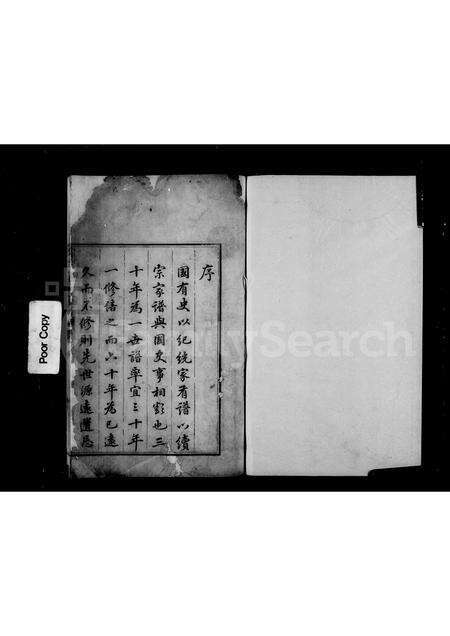 序
國有史以紀統家有譜以續
宗家譜與國史事相類也三
十年為一世譜率宜三十年
一修語之而六十年為已遠
久而不修則先世源遠遺忘
Poor Copy
FamilySearch